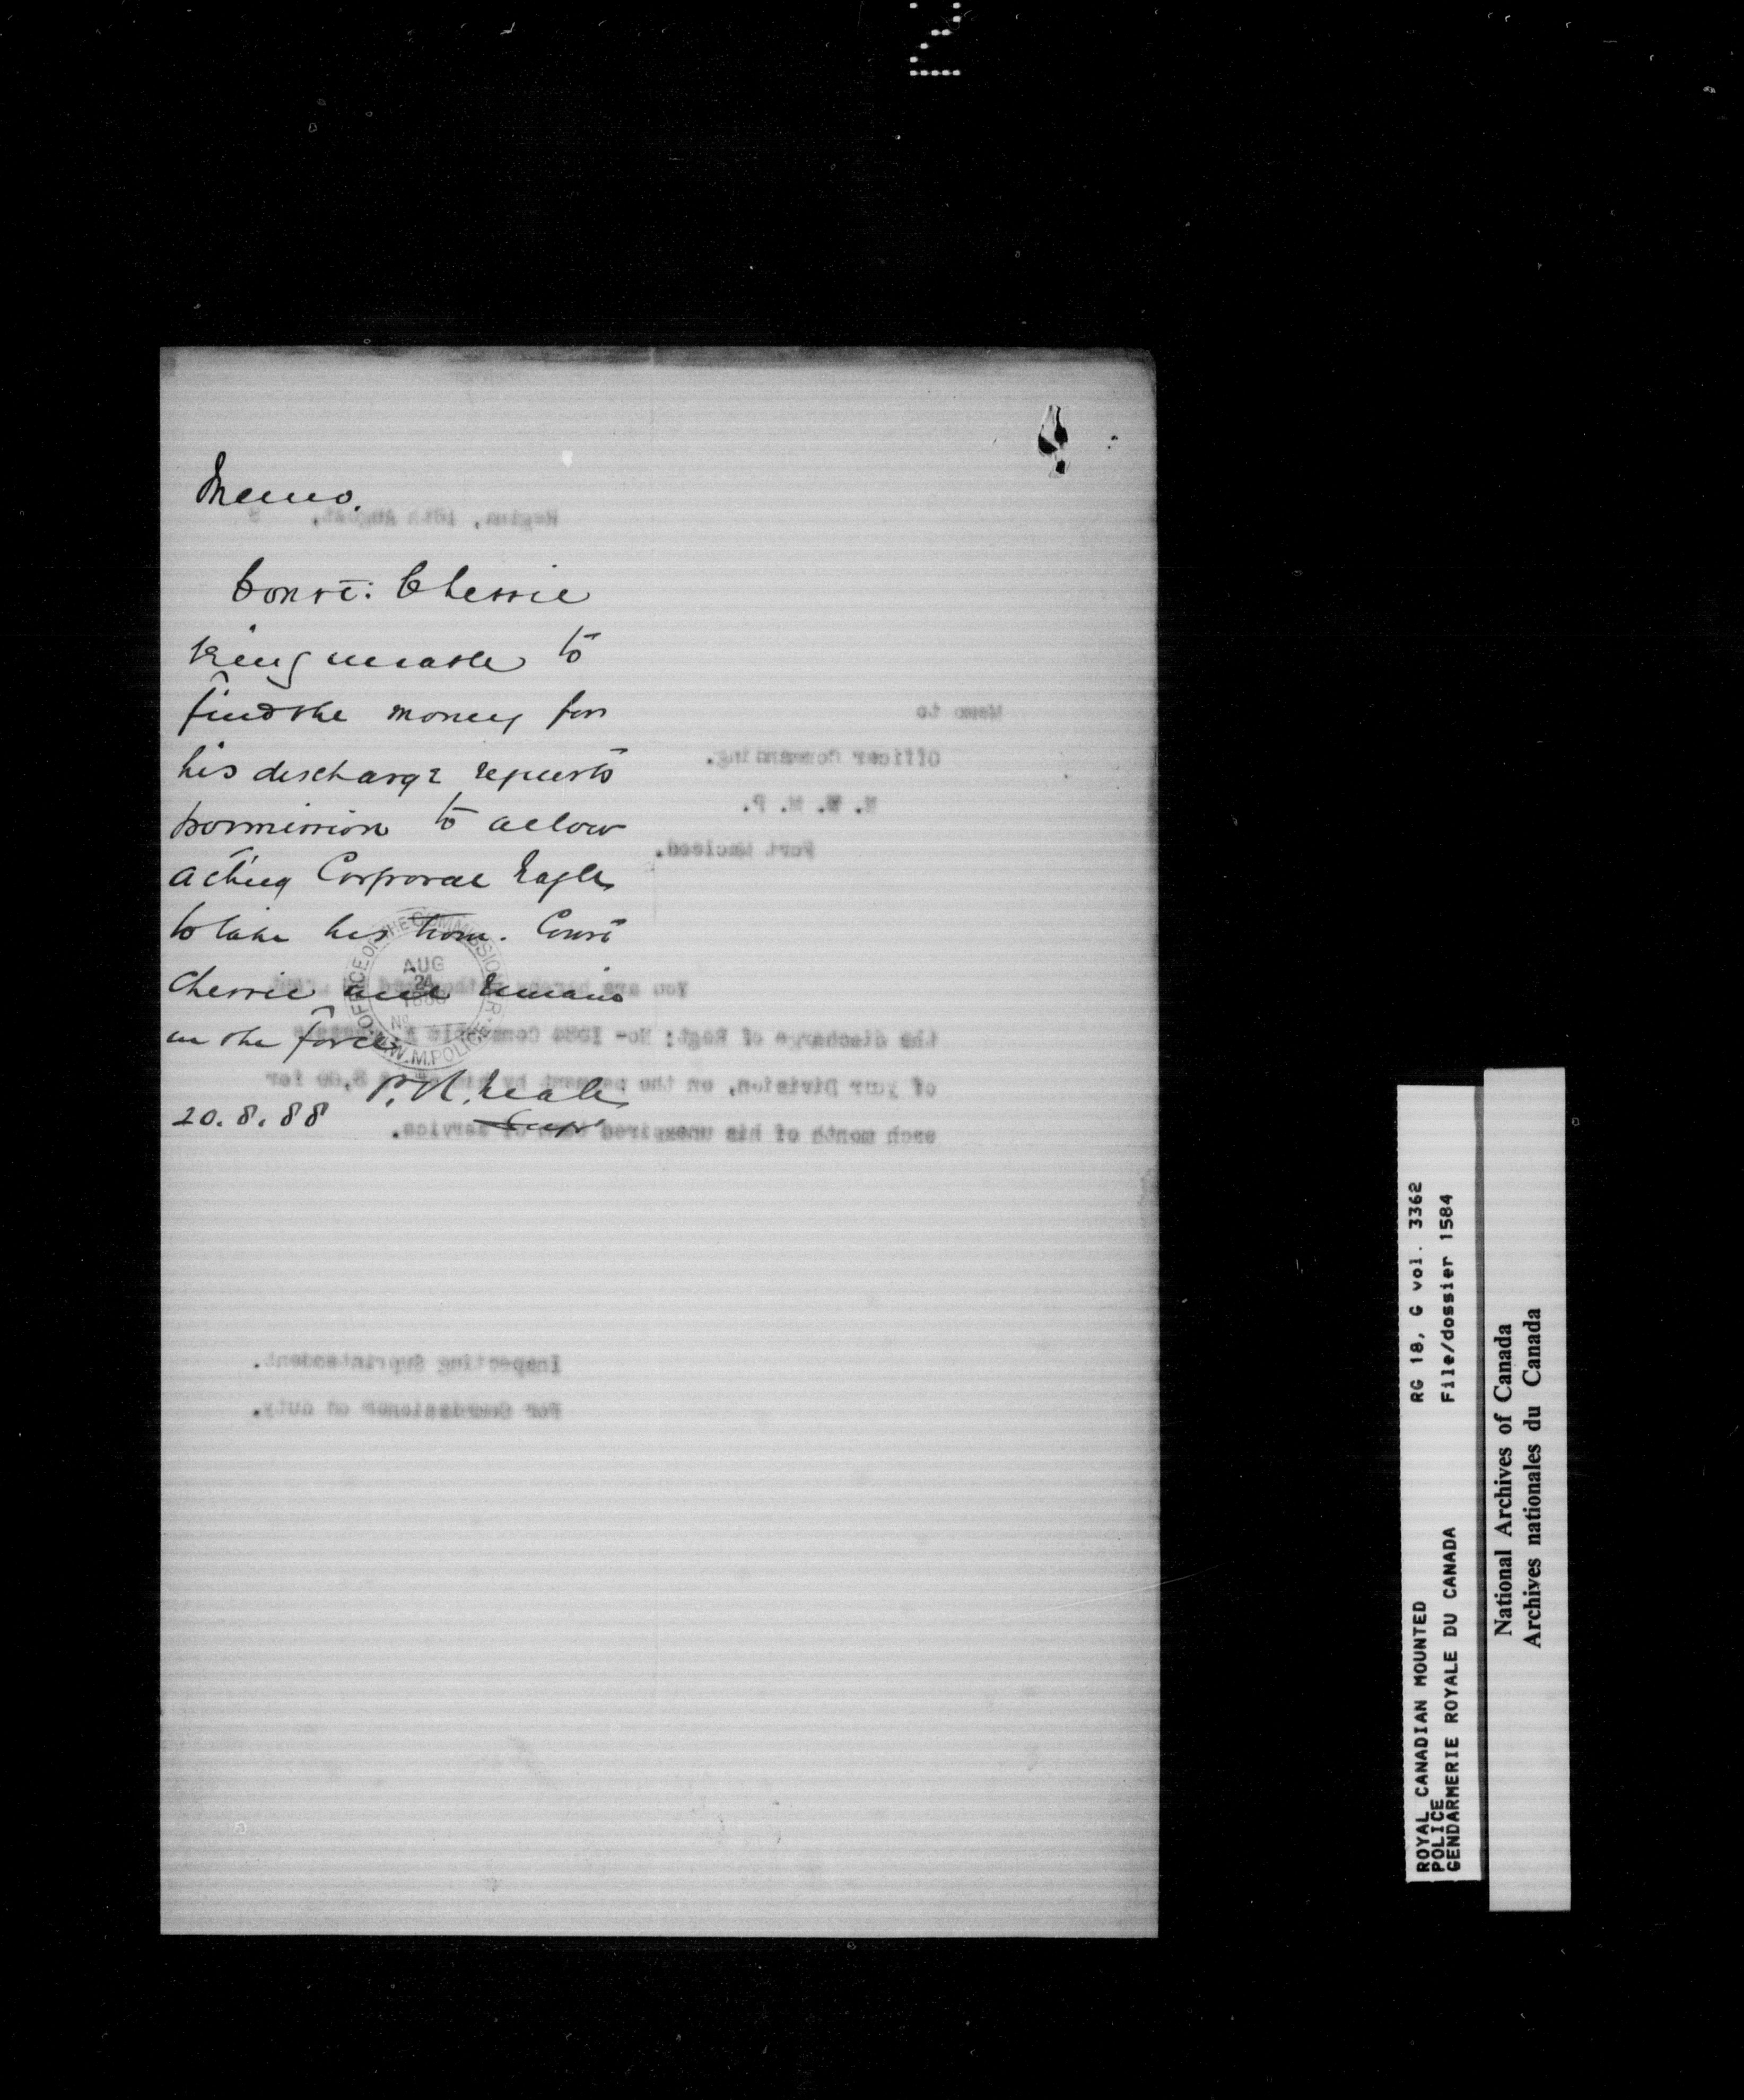 Memo.
Const: Cherrie
being unable to
find the money for
his discharge requests
permission to allow
acting Corporal Eagle
to take his turn. Const
Cherrie will remain
in the force
P. R. Neale
Supt
20.8.88
OFFICE OF THE COMMISSIONER
AUG
24
1888
No
N.W.M.POLICE
Regina, 18th August, 8
Memo to
Officer Commanding.
N. W. M. P.
Fort Macleod.
You are hereby authorized to grant
the discharge of Regt: No- 1584 Constable
of your Division, on the payment by him of $ 3.00 for
each month of his unexpired term of service.
Inspecting Suprintendent.
For Commissioner on duty.
ROYAL CANADIAN MOUNTED RG 18, G vol. 3362
POLICE
GENDARMERIE ROYALE DU CANADA File/dossier 1584
National Archives of Canada
Archives nationales du Canada
2